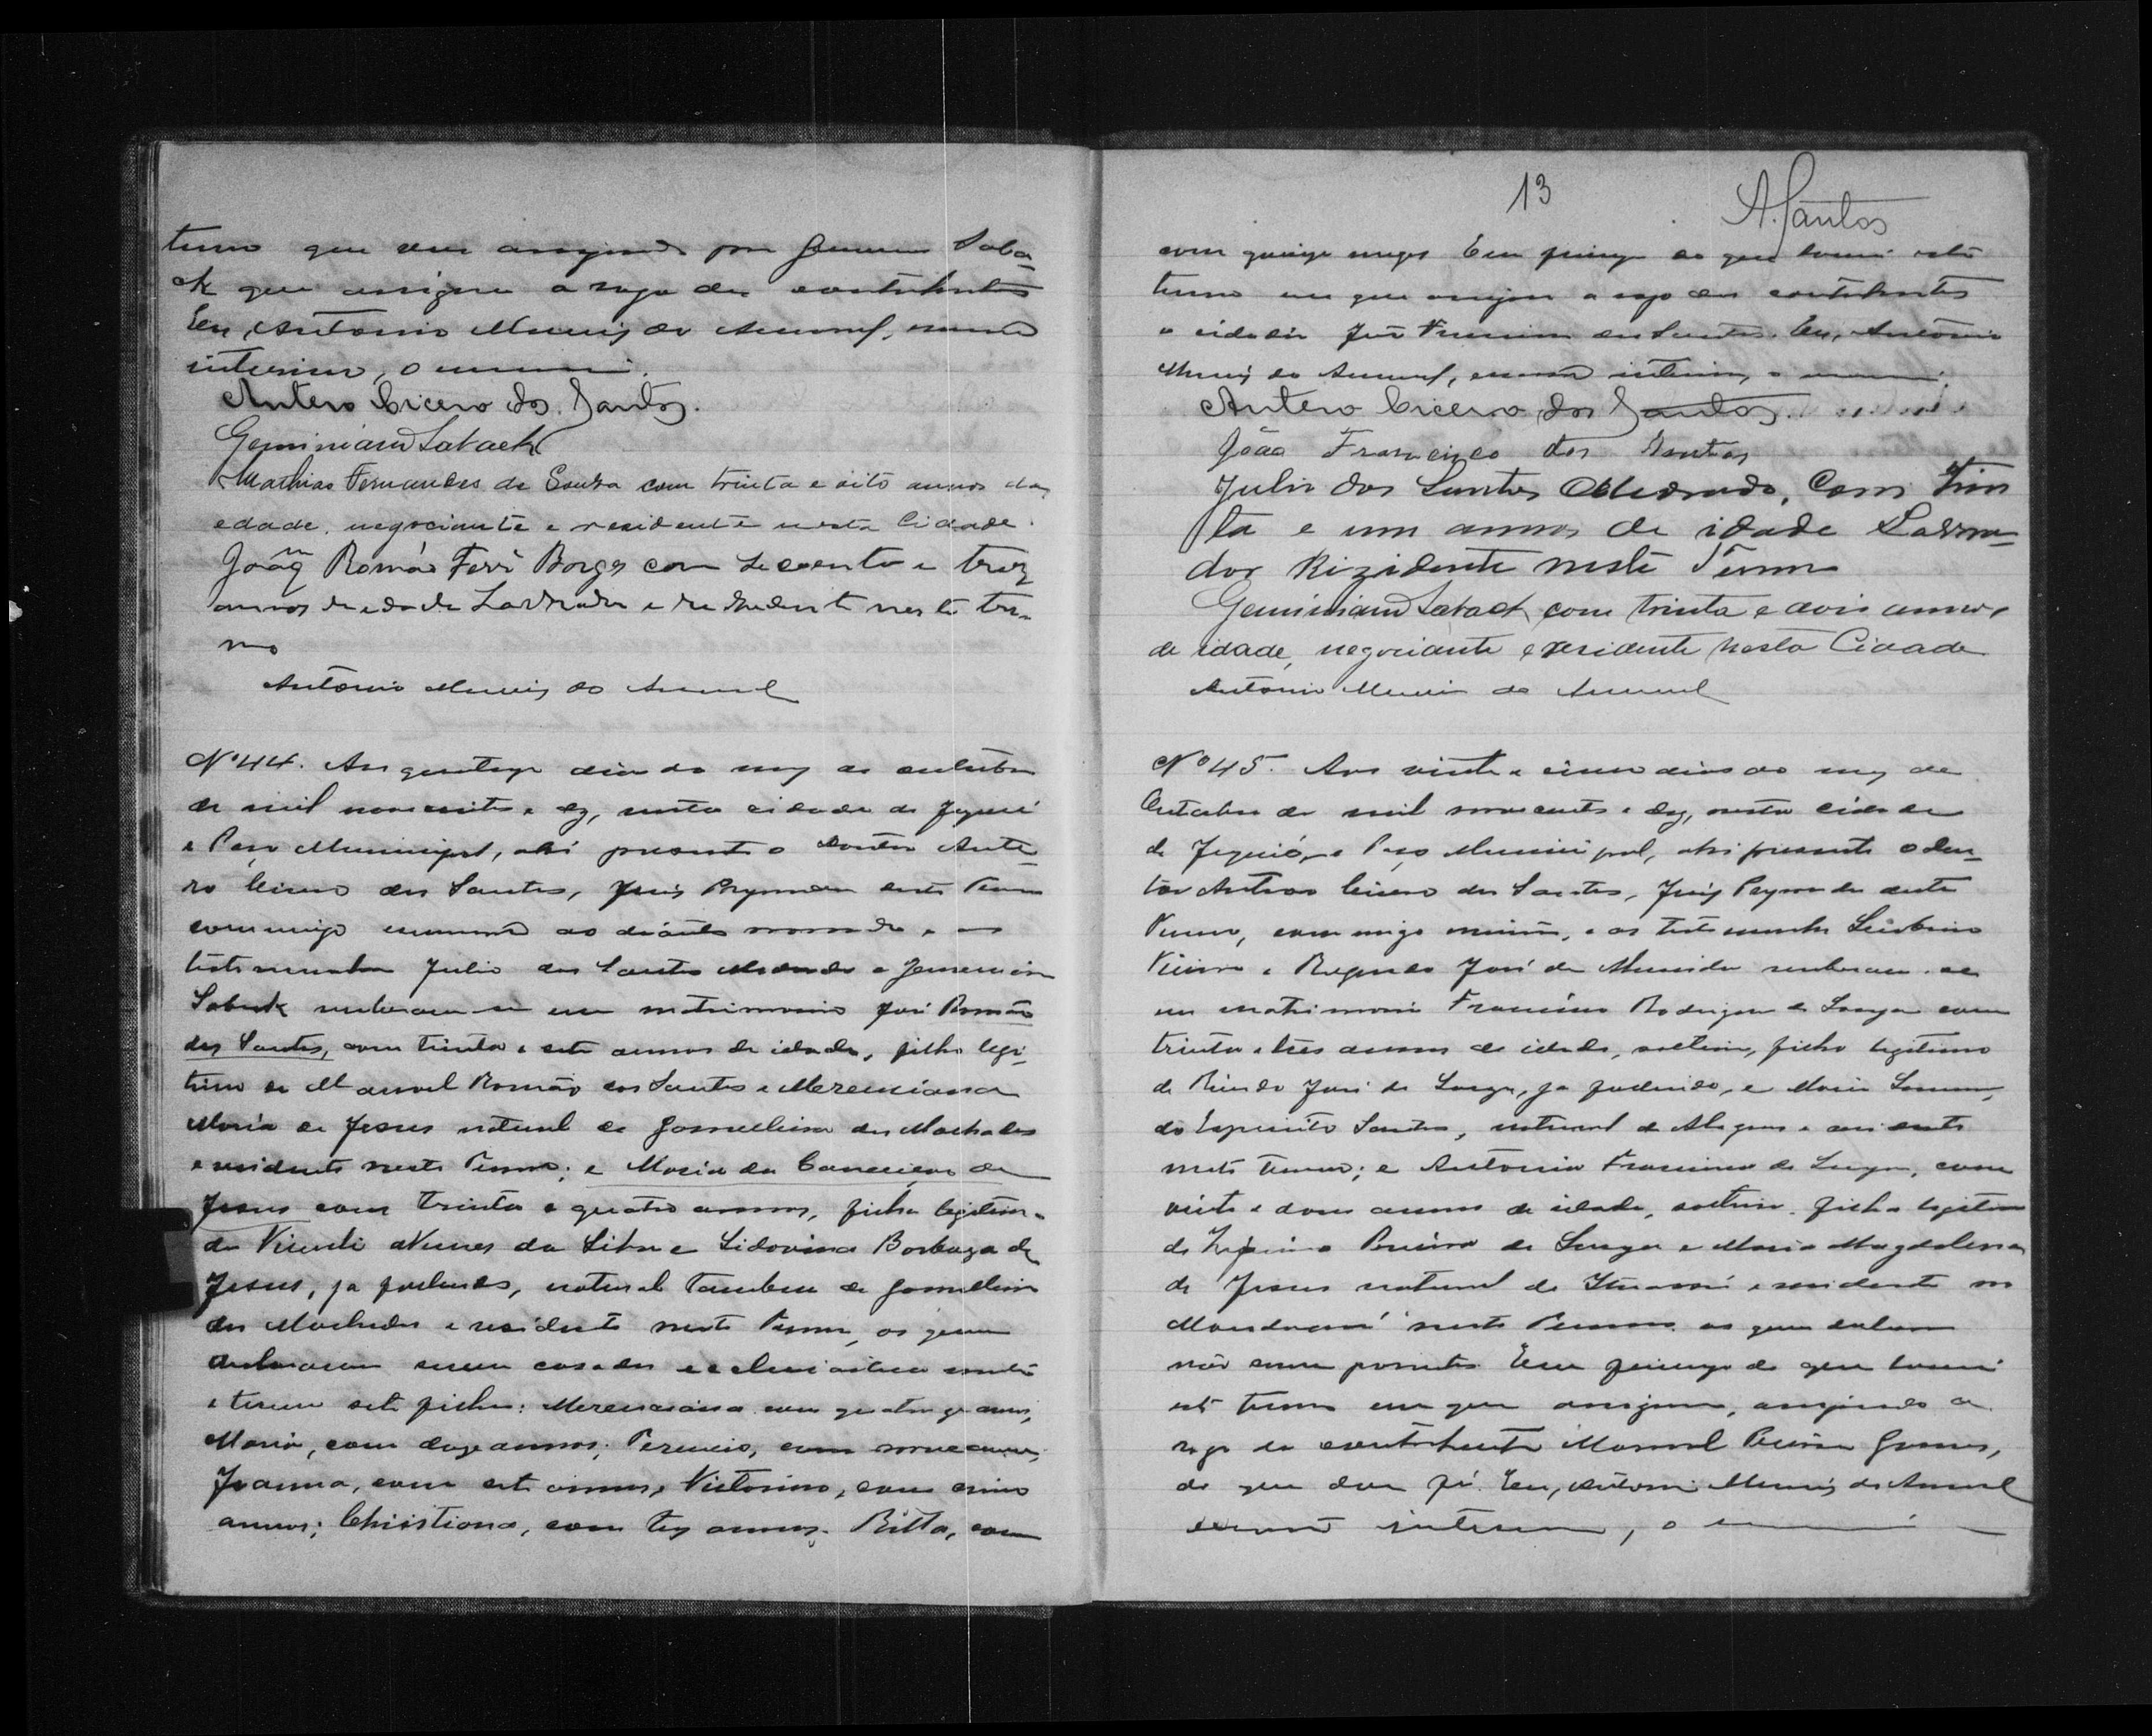 termo que vae assignado por Geminiano Saba-
ck que assigna a rogo dos contrahentes
Eu, Antonio Muniz do Amaral, escrivão
interino, o escrevi.
Antero Cicero dos Santos.
Geminiano Saback
Mathias Fernandes de Souza com trinta e oito annos de
edade, negociante e residente nesta Cidade.
João Romão Ferr Borges com secoenta e trez
annos de edade Lavrador e residente neste ter-
mo
Antonio Muniz do Amaral
Nº 44. Aos quatorze dias do mez de outubro
de mil novecentos e dez, nesta cidade de Jequié
e Paço Municipal, ahi presente o Doutor Ante-
ro Cicero dos Santos, Juiz Preparador deste Termo
commigo escrivão ao diante nomeado, e as
testemunhas Julio dos Santos Medrado e Geminiano
Saback receberam-se em matrimonio José Romão
dos Santos, com trinta e sete annos de idade, filho legi-
timo de Manoel Romão dos Santos e Merenciana
Maria de Jesus natural de Gamelleira dos Machados
e residente neste Termo; e Maria da Conceição de
Jesus com trinta e quatro annos, filha legitima
de Vicente Nunes da Silva e Lidovina Barboza de
Jesus, ja fallecidos, natural tambem de Gamelleira
dos Machados e residente neste Termo, os quaes
declararam serem casados ecclesiasticamente
e terem sete filhos: Merenciana com quatorze annos,
Maria, com doze annos; Terencio, com nove annos,
Joanna, com sete annos, Victorino, com cinco
annos; Christiana, com trez annos. Ritta, com
13
A. Santos
com quinze mezes Em firmeza do que lavrei este
termo em que assigna a rogo dos contrahentes
o cidadão João Francisco dos Santos. Eu, Antonio
Muniz do Amaral, escrivão interino, o escrevi.
Antero Cicero dos Santos.
João Francisco dos Santos
Julio dos Santos Medrado, Com trin
ta e um annos de idade Lavra-
dor Rizidente neste Termo
Geminiano Saback com trinta e dois annos
de idade, negociante e residente nesta Cidade
Antonio Muniz do Amaral
Nº 45. Aos vinte e cinco dias do mez de
Outubro de mil novecentos e dez, nesta cidade
de Jequié, e Paço Municipal, ahi presente o dou-
tor Antero Cicero dos Santos, Juiz Preparador deste
Termo, commigo escrivão, e as testemunhas
Vieira e José de Almeida receberam-se
em matrimonio Francisco Rodrigues de Souza com
trinta e tres annos de idade, solteiro, filho legitimo
de José de Souza, ja fallecido, e Maria
do Espirito Santo, natural de Alagoas e residente
neste termo; e Antonia Francisca de Souza, com
vinte e dous annos de idade, solteira, filha legitima
de de Souza e Maria Magdalena
de Jesus natural de e residente no
neste Termo os quaes declaram
não serem parentes Em firmeza do que lavrei
este termo em que assignam, assignando a
rogo da contrahente Manoel Gomes,
do que dou fé. Eu, Antonio Muniz do Amaral
escrivão interino, o escrevi